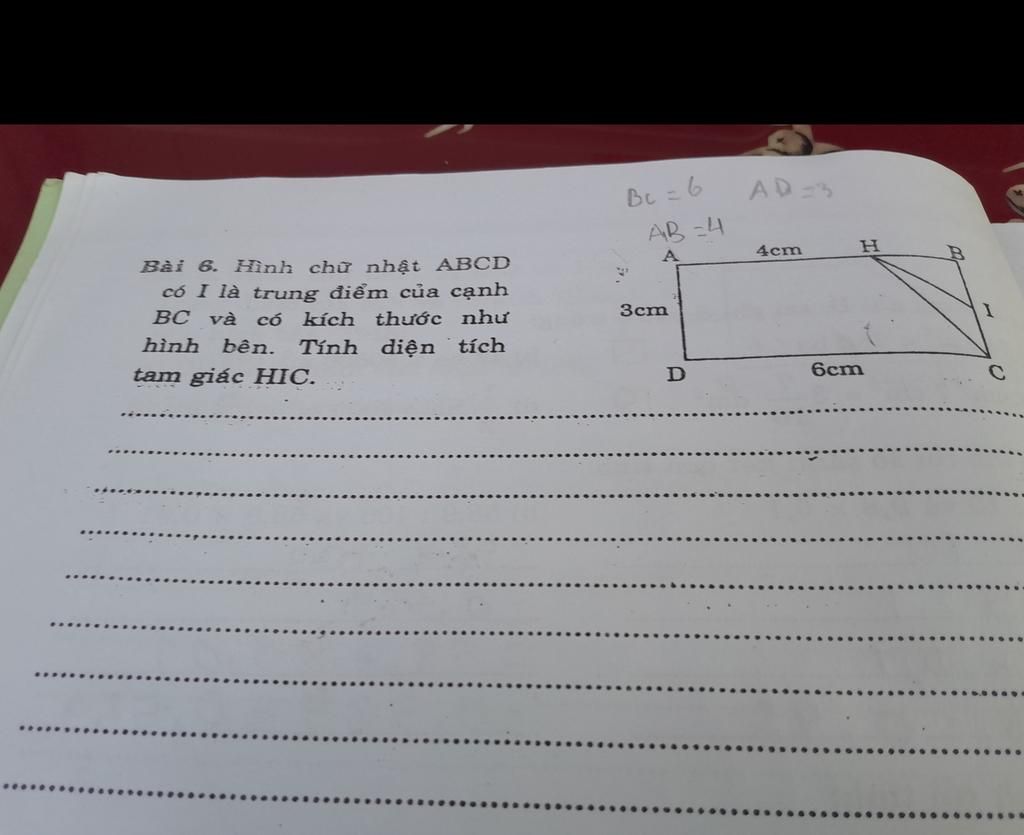 BC = 6 AD = 3
AB = 4
Bài 6. Hình chữ nhật ABCD
có I là trung điểm của cạnh
BC và có kích thước như
hình bên. Tính diện tích
tam giác HIC.
A 4cm H B
3cm I
D 6cm C